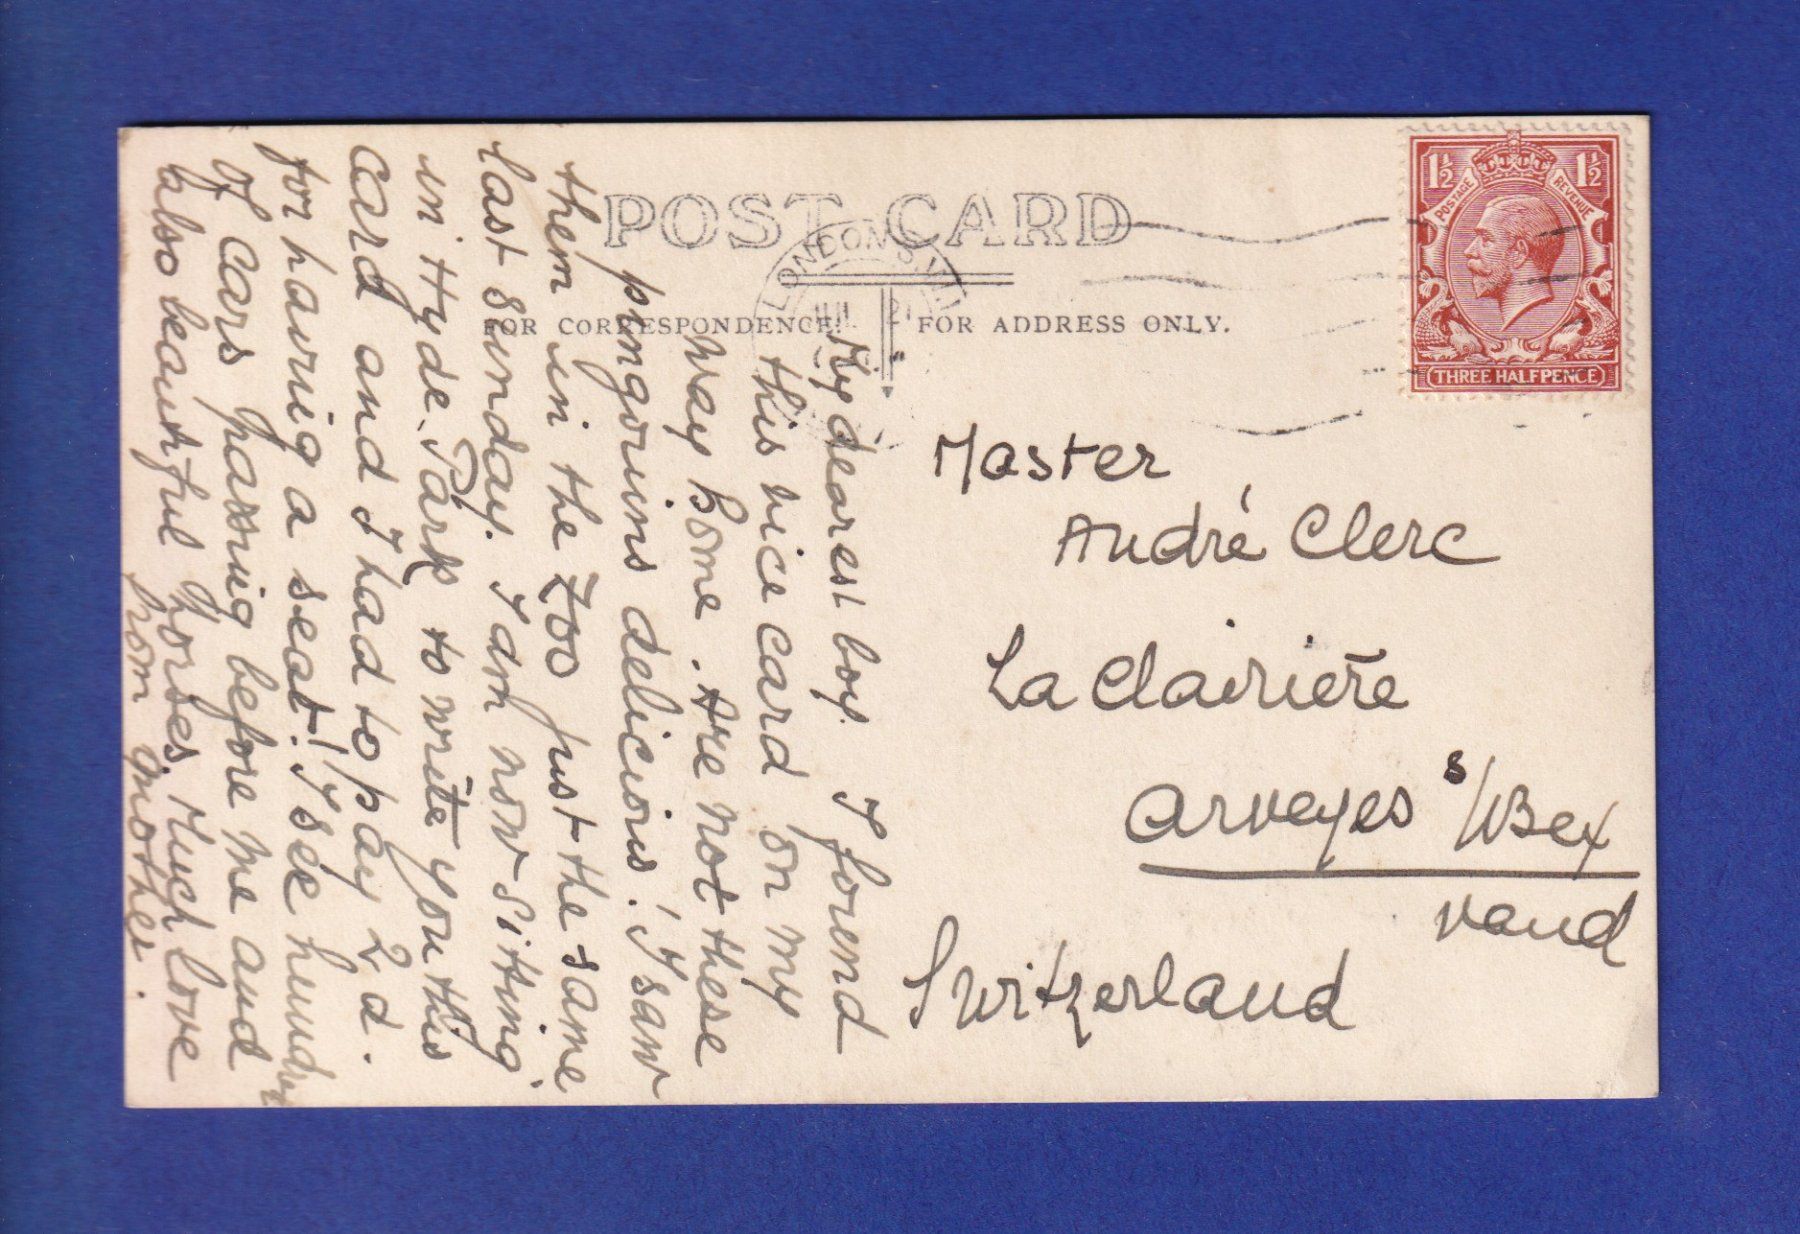 POST CARD
FOR CORRESPONDENCE.
FOR ADDRESS ONLY.
LONDON. S.W.1
1½
1½
POSTAGE
REVENUE
THREE HALFPENCE
My dearest boy. I found
this nice card on my
way home. Are not these
pingouins delicious! I saw
them in the Zoo just the same
last sunday. I am now sitting
in Hyde Park to write you this
card and I had to pay 2 d.
for having a seat! I see hundrer
of cars passing before me and
also beautiful horses. Much love
from mother.
Master
André Clerc
La Clairière
Arveyes s/Bex
Vaud
Switzerland